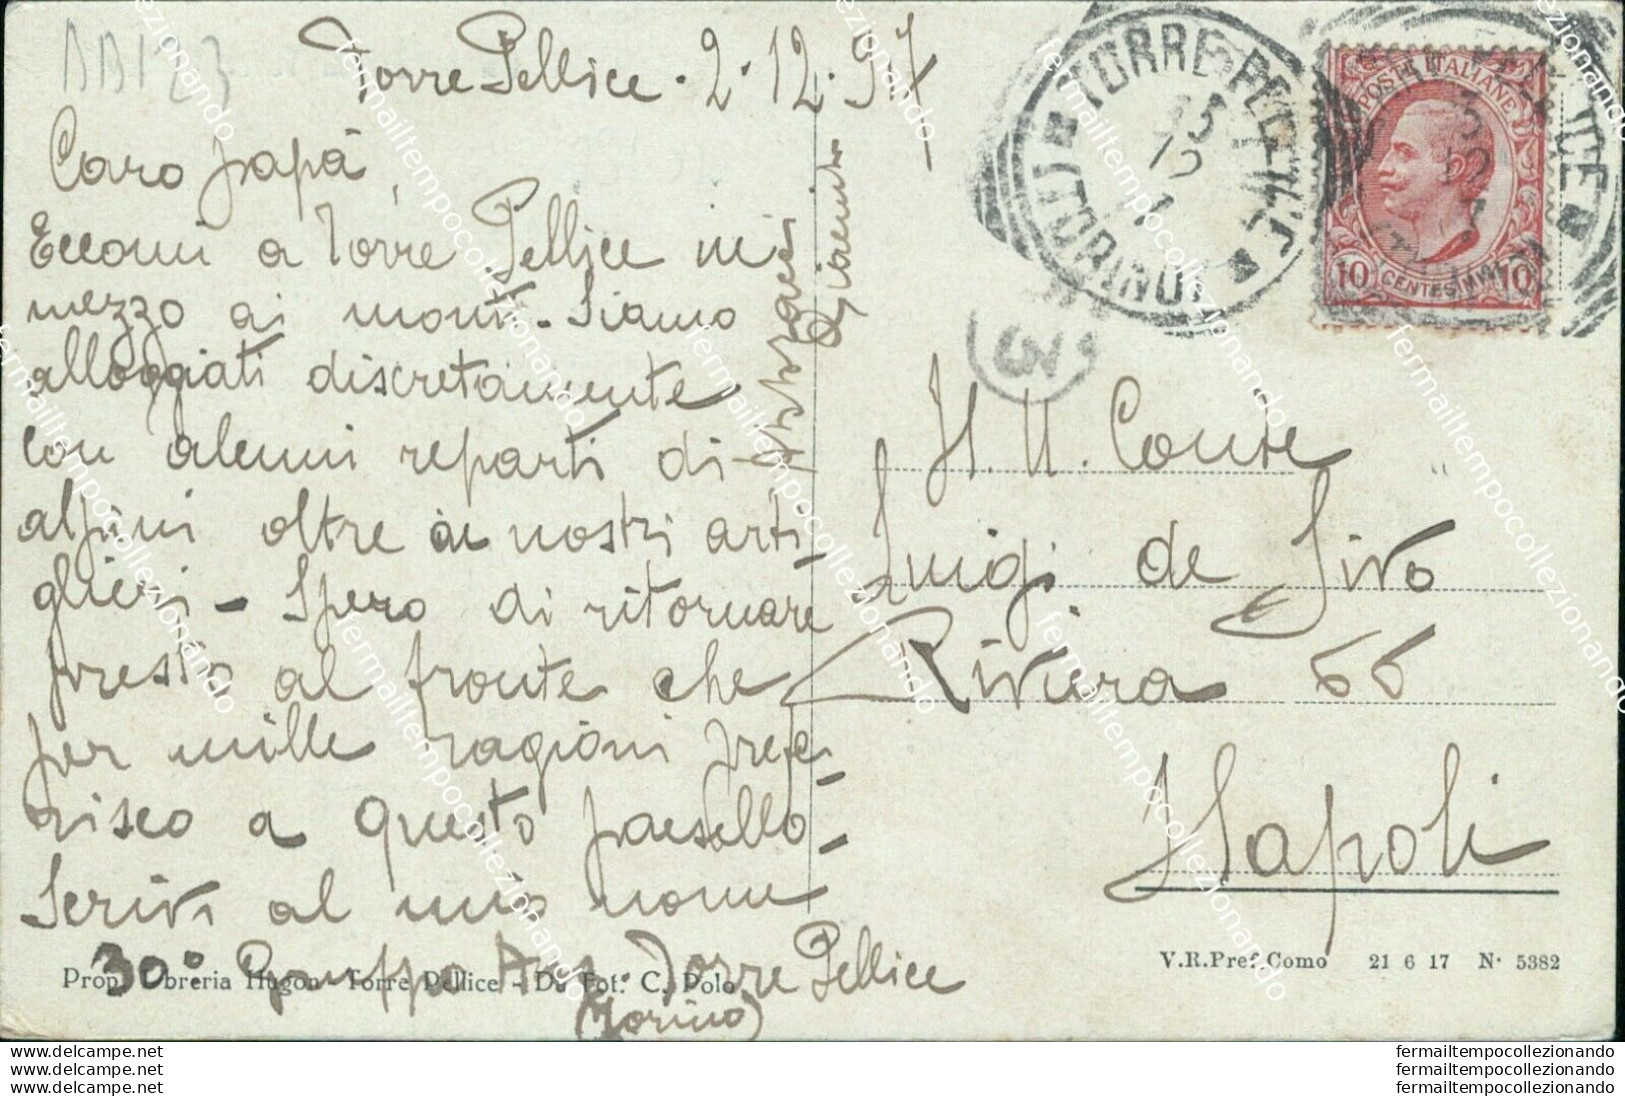 BB123
Torre Pellice. 2.12.917
Caro papà,
Eccomi a Torre Pellice in
mezzo ai monti. Siamo
alloggiati discretamente
con alcuni reparti di
alpini oltre ai nostri arti-
glieri - Spero di ritornare
presto al fronte che
per mille ragioni prefe-
risco a questo paesello-
Scrivi al mio nome
30° Gruppo Torre Pellice
(Torino)
Giacinto
TORRE PELLICE
(TORINO)
12
3
POSTE ITALIANE
10 CENTESIMI 10
Conte
Luigi de Sivo
Riviera 66
Napoli
Prop. Libreria Hugon Torre Pellice - Da Fot. C. Polo
V.R.Pref.Como 21 6 17 N· 5382
www.delcampe.net
www.delcampe.net
www.delcampe.net
fermailtempocollezionando
fermailtempocollezionando
fermailtempocollezionando